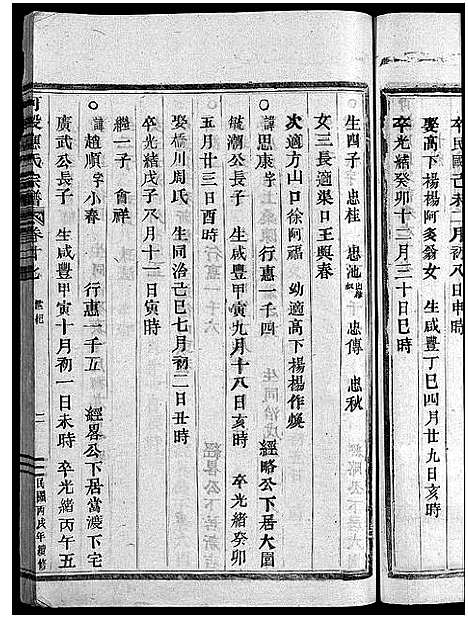 卒民國己未二月初八日申時
娶高下楊楊阿炎翁女 生咸豐丁巳四月廿九日亥時
卒光緒癸卯十三月三十日巳時
生四子 忠桂 忠池 忠傳 忠秋
女三長適渠口王與春
次適方山口徐阿福 幼適高下楊楊作煥
諱思康字 行惠一千四 經略公下居大園
毓潮公長子 生咸豐甲寅九月十八日亥時 卒光緒癸卯
五月廿三日酉時
娶檀川周氏 生同治己巳七月初二日丑時
卒光緒戊子八月十一日寅時
繼一子 會祥
諱趙順字小春 行惠一千五 經畧公下居當渡下宅
廣武公長子 生咸豐甲寅十月初一日未時 卒光緒丙午五
氏宗譜 二 民國丙戌年續修